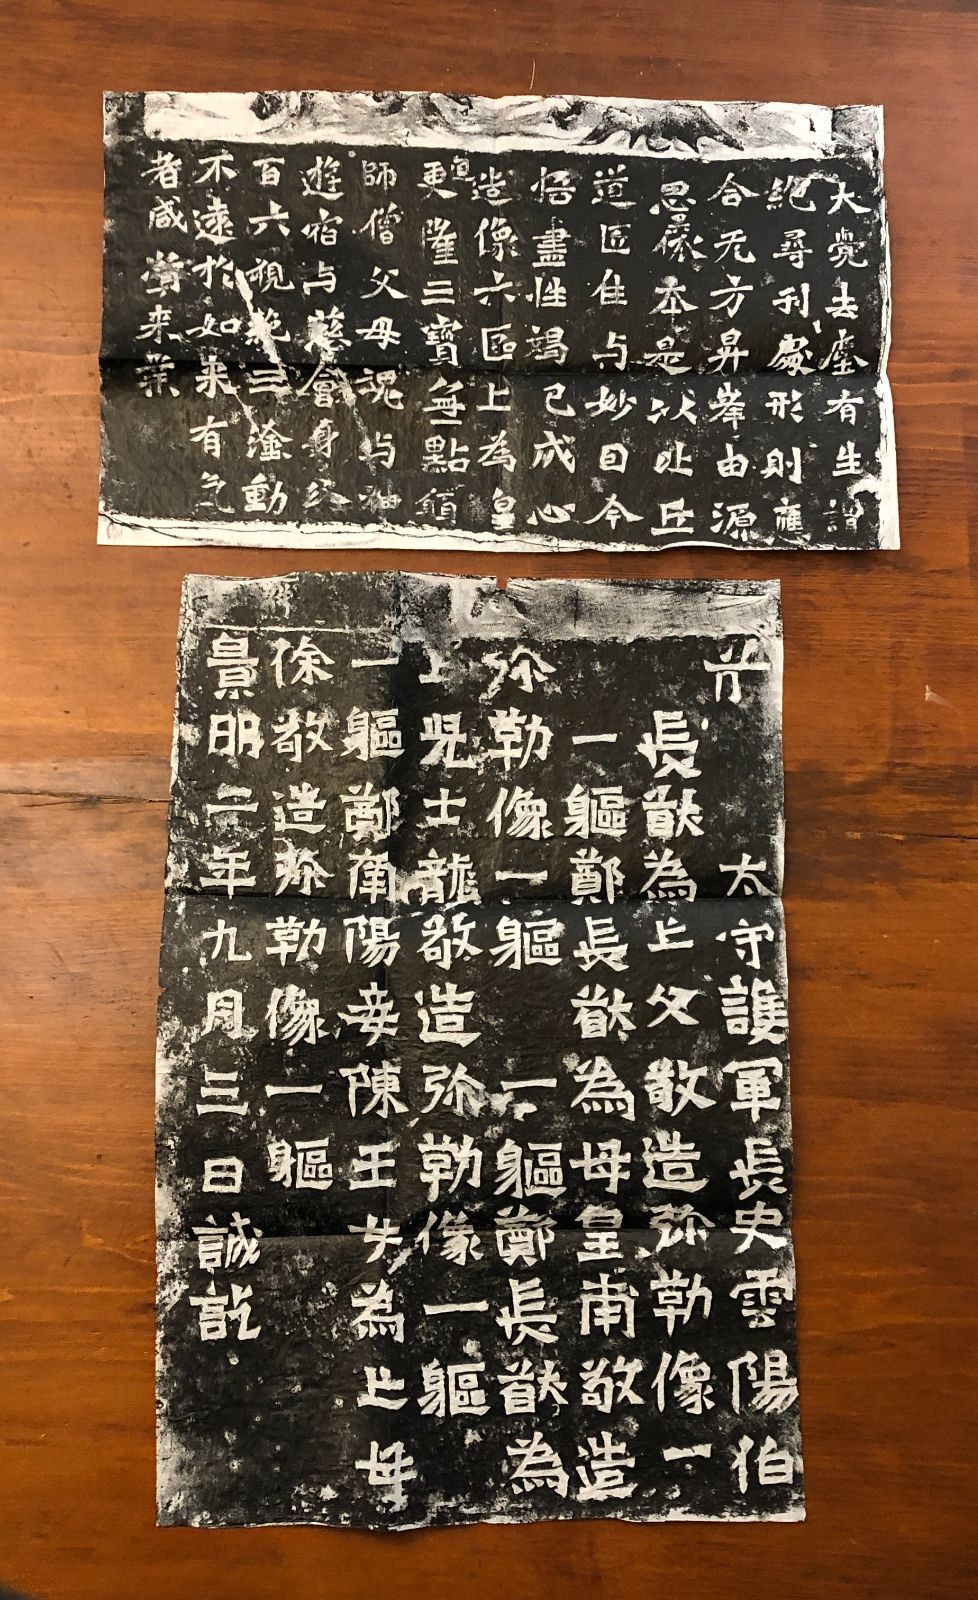 大覺去塵有生謂
絕尋刊處形則應
合无方昇峯由源
思依本是以比丘
道匠住与妙曰今
悟盡性竭已成心
造像六區上為皇
更隆三寶無點願
師僧父母魂与神
遊宿与慈會身終
百六視絕三塗動
不遠於如來有氣
者咸嘗來業
太守護軍長史雲陽伯
長猷為亡父敬造弥勒像一
一軀鄭長猷為母皇甫敬造
弥勒像一軀 一軀鄭長猷為
亡兒士龍敬造弥勒像一軀
一軀鄭南陽妾陳王女為亡母
徐敬造弥勒像一軀
景明二年九月三日誠訖